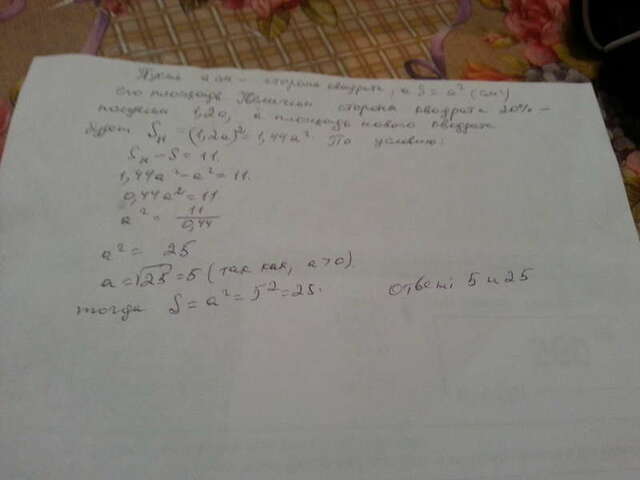 Пусть a см - сторона квадрата, а S = a² (см²)
его площадь. Увеличим сторона квадрата 20% -
получим 1,2a, а площадь нового квадрата
будет Sн = (1,2a)² = 1,44a². По условию:
Sн - S = 11.
1,44a² - a² = 11.
0,44a² = 11
a² = 11/0,44
a² = 25
a = √25 = 5 (так как, a>0).
тогда S = a² = 5² = 25.
Ответ: 5 и 25